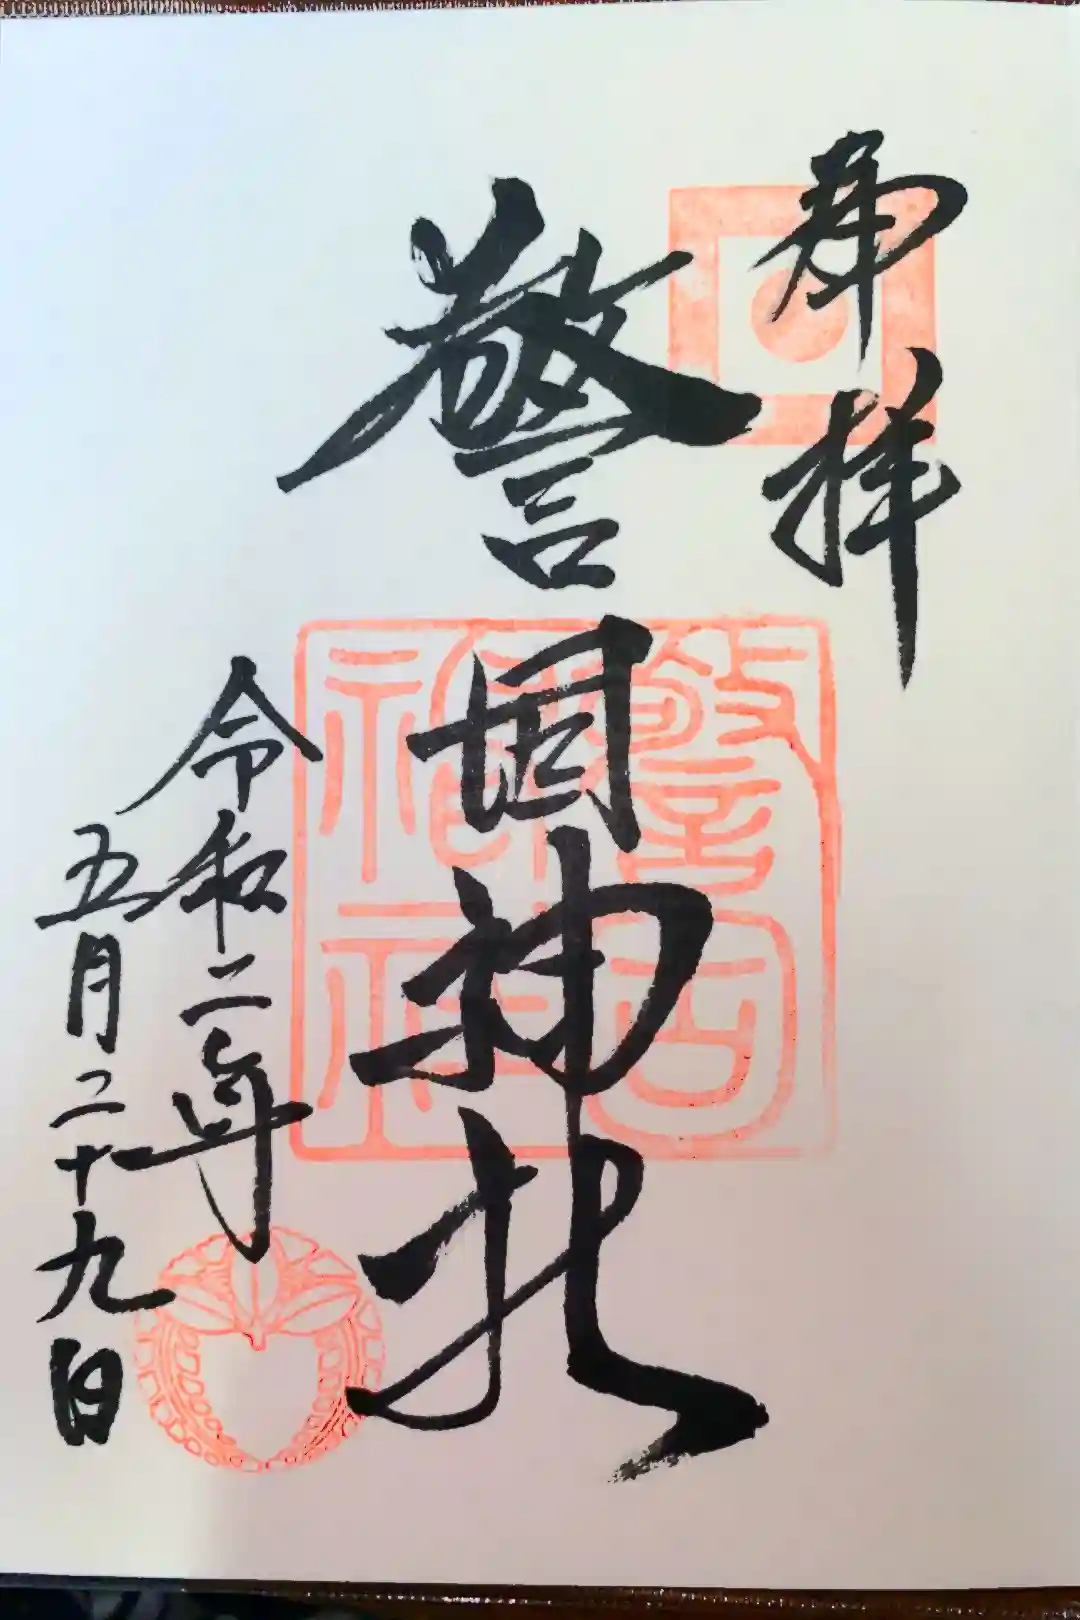 奉拝
警固神社
令和二年
五月二十九日
警固
神社